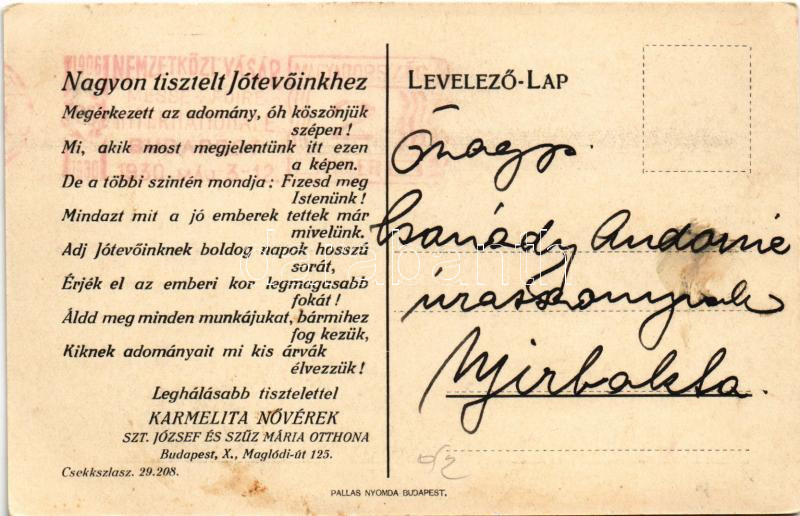 1906 NEMZETKÖZI VÁSÁR
Nagyon tisztelt Jótevőinkhez
Megérkezett az adomány, óh köszönjük
szépen!
Mi, akik most megjelentünk itt ezen
a képen.
De a többi szintén mondja: Fizesd meg
Istenünk!
Mindazt mit a jó emberek tettek már
mivelünk.
Adj Jótevőinknek boldog napok hosszú
sorát,
Érjék el az emberi kor legmagasabb
fokát!
Áldd meg minden munkájukat, bármihez
fog kezük,
Kiknek adományait mi kis árvák
élvezzük!
Leghálásabb tisztelettel
KARMELITA NŐVÉREK
SZT. JÓZSEF ÉS SZŰZ MÁRIA OTTHONA
Budapest, X., Maglódi-út 125.
Csekkszlasz. 29.208.
LEVELEZŐ-LAP
Őnagys.
Csanády Andorné
úrasszonynak
Nyirbakta.
PALLAS NYOMDA BUDAPEST.
darabanth